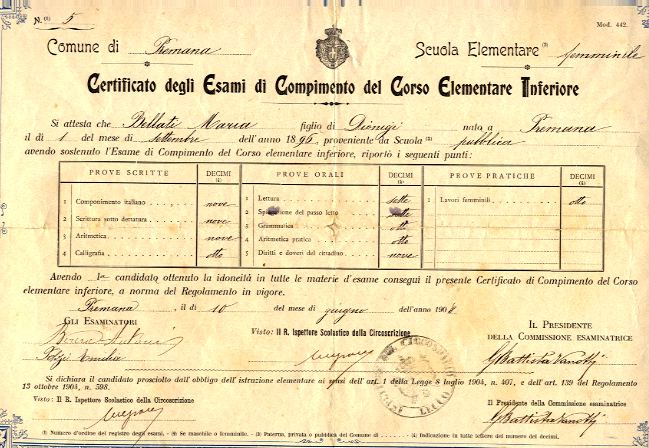 N. (1) 5
Mod. 442.
Comune di Premana
Scuola Elementare (2) femminile
Certificato degli Esami di Compimento del Corso Elementare Inferiore
Si attesta che Bellati Maria figlio di Dionigi nato a Premana
il dì 1 del mese di settembre dell'anno 1895, proveniente da Scuola (3) pubblica
avendo sostenuto l'Esame di Compimento del Corso elementare inferiore, riportò i seguenti punti:
PROVE SCRITTE DECIMI (4)
1 Componimento italiano nove
2 Scrittura sotto dettatura nove
3 Aritmetica nove
4 Calligrafia otto
PROVE ORALI DECIMI (4)
1 Lettura sette
2 Spiegazione del passo letto sette
3 Grammatica otto
4 Aritmetica pratica otto
5 Diritti e doveri del cittadino nove
PROVE PRATICHE DECIMI (4)
1 Lavori femminili otto
Avendo la candidato ottenuto la idoneità in tutte le materie d'esame conseguì il presente Certificato di Compimento del Corso
elementare inferiore, a norma del Regolamento in vigore.
Premana, il dì 10 del mese di giugno dell'anno 190
GLI ESAMINATORI
Visto: Il R. Ispettore Scolastico della Circoscrizione
IL PRESIDENTE
DELLA COMMISSIONE ESAMINATRICE
Battista
Si dichiara il candidato prosciolto dall'obbligo dell'istruzione elementare ai sensi dell'art. 1 della Legge 8 luglio 1904, n. 407, e dell'art. 139 del Regolamento
13 ottobre 1904, n. 598.
Visto: Il R. Ispettore Scolastico della Circoscrizione
Il Presidente della Commissione esaminatrice
Battista
(1) Numero d'ordine del registro degli esami. - (2) Se maschile o femminile. - (3) Paterna, privata o pubblica del Comune di - (4) Indicazione in tutte lettere del numero dei decimi.